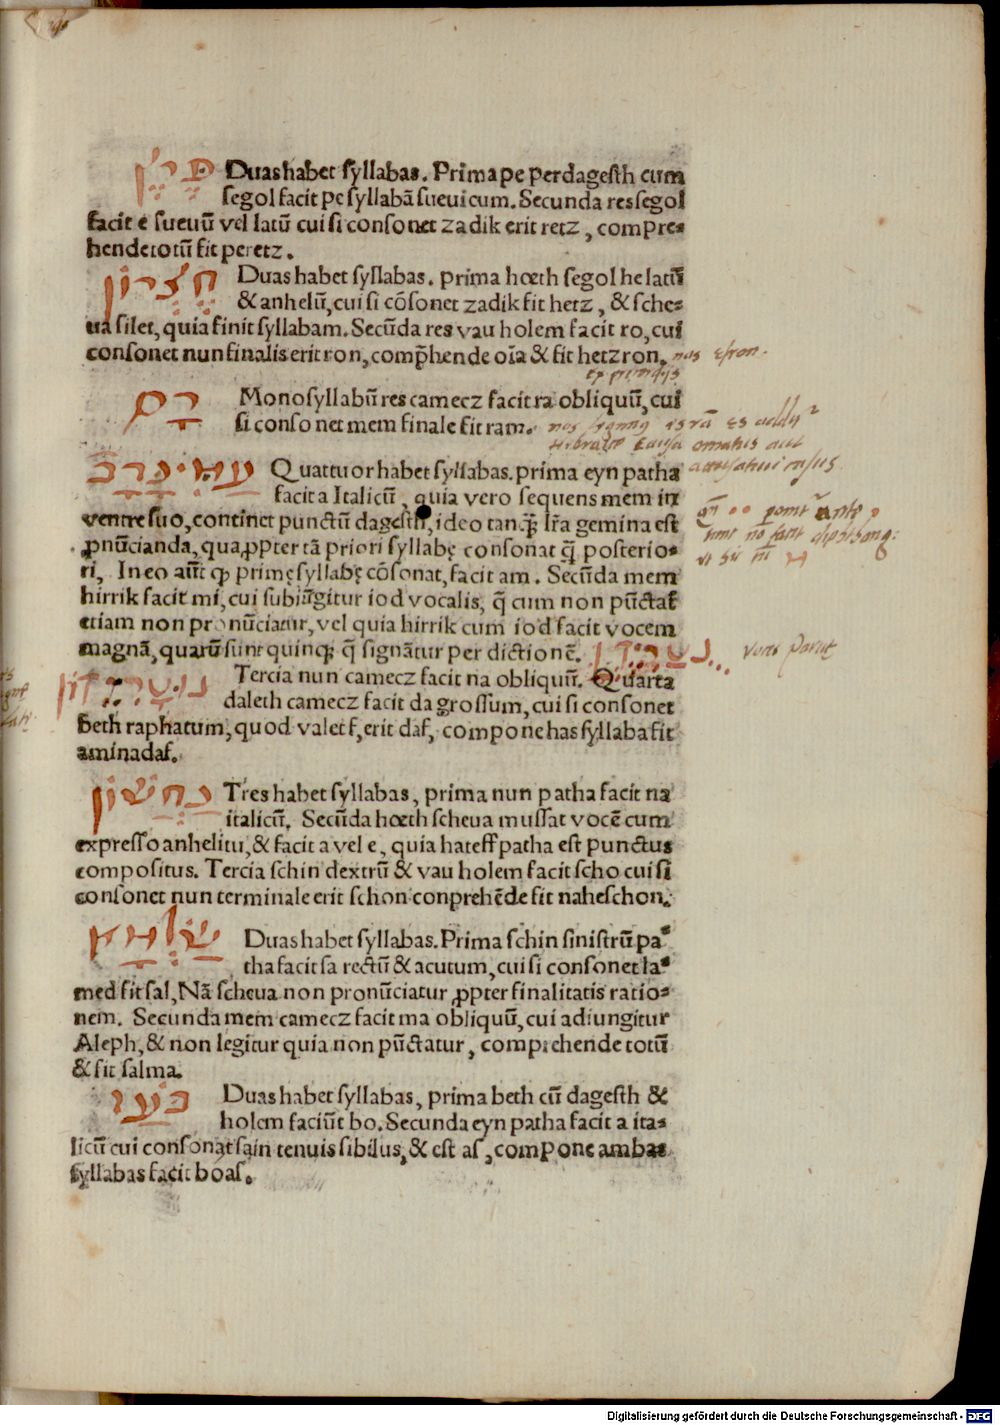 פֶּרֶץ Duas habet syllabas. Prima pe per dagesth cum
segol facit pe syllabã sueuicum. Secunda res segol
facit e sueuũ vel latũ cui si consonet zadik erit retz, compre-
hende totũ fit peretz.
חֶצְרוֹן Duas habet syllabas. prima hœth segol he latũ
& anhelũ, cui si cõsonet zadik fit hetz, & sche-
ua silet, quia finit syllabam. Secũda res vau holem facit ro, cui
consonet nun finalis erit ron, comp̃hende oĩa & fit hetzron. nos esron.
רָם Monosyllabũ res camecz facit ra obliquũ, cui
si consonet mem finale fit ram.
Quattuor habet syllabas. prima eyn patha
facit a Italicũ, quia vero sequens mem in
ventre suo, continet punctũ dagesth, ideo tanq̃ lr̃a gemina est
ꝓnũcianda, qua ꝓpter tã priori syllabę consonat q̃ posterio-
ri. In eo aũt ꝙ primę syllabę cõsonat, facit am. Secũda mem
hirrik facit mi, cui subiũgitur iod vocalis, q̃ cum non pũctat̃
etiam non pronũciatur, vel quia hirrik cum iod facit vocem
magnã, quarũ sunt quinqꝫ q̃ signãtur per dictionẽ.
Tercia nun camecz facit na obliquũ. Quarta
daleth camecz facit da grossum, cui si consonet
beth raphatum, quod valet f, erit daf, compone has syllaba fit
aminadaf.
נַחְשׁוֹן Tres habet syllabas, prima nun patha facit na
italicũ. Secũda hœth scheua mussat vocẽ cum
expresso anhelitu, & facit a vel e, quia hateff patha est punctus
compositus. Tercia schin dextrũ & vau holem facit scho cui si
consonet nun terminale erit schon conprehẽde fit naheschon.
שַׂלְמָא Duas habet syllabas. Prima schin sinistrũ pa-
tha facit sa rectũ & acutum, cui si consonet la-
med fit sal, Nã scheua non pronũciatur ꝓpter finalitatis ratio-
nem. Secunda mem camecz facit ma obliquũ, cui adiungitur
Aleph, & non legitur quia non pũctatur, comprehende totũ
& fit salma.
בֹּעַז Duas habet syllabas, prima beth cũ dagesth &
holem faciũt bo. Secunda eyn patha facit a ita-
licũ cui consonat sain tenuis sibilus, & est as, compone ambas
syllabas facit boas.
Digitalisierung gefördert durch die Deutsche Forschungsgemeinschaft - DFG